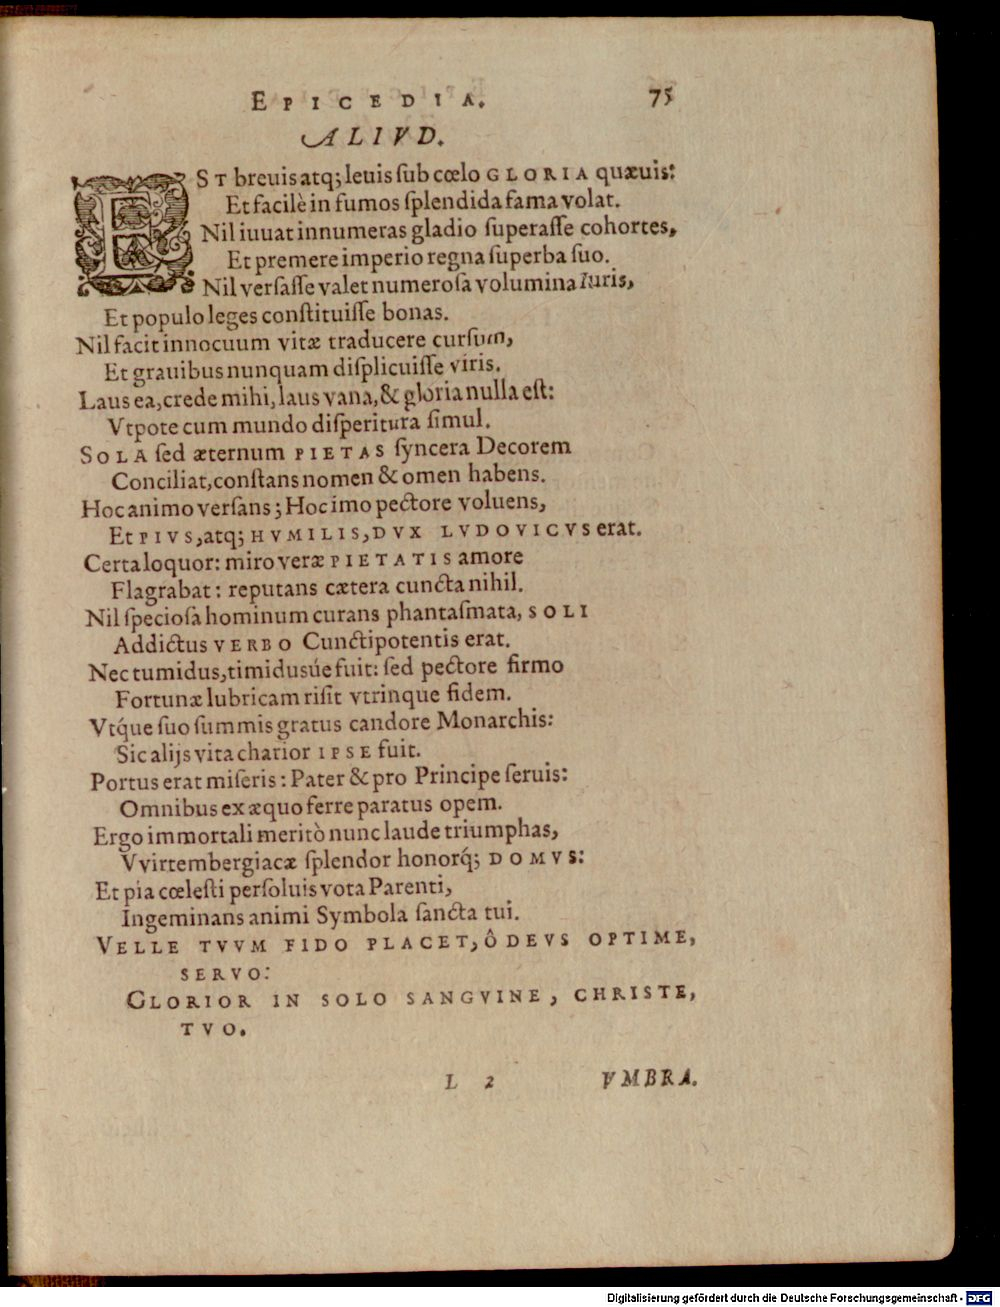 EPICEDIA. 75
ALIVD.
EST breuis atq; leuis ſub cœlo GLORIA quæuis:
Et facilè in fumos ſplendida fama volat.
Nil iuuat innumeras gladio ſuperaſſe cohortes,
Et premere imperio regna ſuperba ſuo.
Nil verſaſſe valet numeroſa volumina Iuris,
Et populo leges conſtituiſſe bonas.
Nil facit innocuum vitæ traducere curſum,
Et grauibus nunquam diſplicuiſſe viris.
Laus ea, crede mihi, laus vana, & gloria nulla eſt:
Vtpote cum mundo diſperitura ſimul.
SOLA ſed æternum PIETAS ſyncera Decorem
Conciliat, conſtans nomen & omen habens.
Hoc animo verſans; Hoc imo pectore voluens,
Et PIVS, atq; HVMILIS, DVX LVDOVICVS erat.
Certa loquor: miro veræ PIETATIS amore
Flagrabat: reputans cætera cuncta nihil.
Nil ſpecioſa hominum curans phantaſmata, SOLI
Addictus VERBO Cunctipotentis erat.
Nec tumidus, timidusúe fuit: ſed pectore firmo
Fortunæ lubricam riſit vtrinque fidem.
Vtq́ue ſuo ſummis gratus candore Monarchis:
Sic alijs vita charior IPSE fuit.
Portus erat miſeris: Pater & pro Principe ſeruis:
Omnibus ex æquo ferre paratus opem.
Ergo immortali meritò nunc laude triumphas,
Vvirtembergiacæ ſplendor honorq́; DOMVS:
Et pia cœleſti perſoluis vota Parenti,
Ingeminans animi Symbola ſancta tui.
VELLE TVVM FIDO PLACET, Ô DEVS OPTIME,
SERVO:
GLORIOR IN SOLO SANGVINE, CHRISTE,
TVO.
L 2 VMBRA.
Digitalisierung gefördert durch die Deutsche Forschungsgemeinschaft - DFG